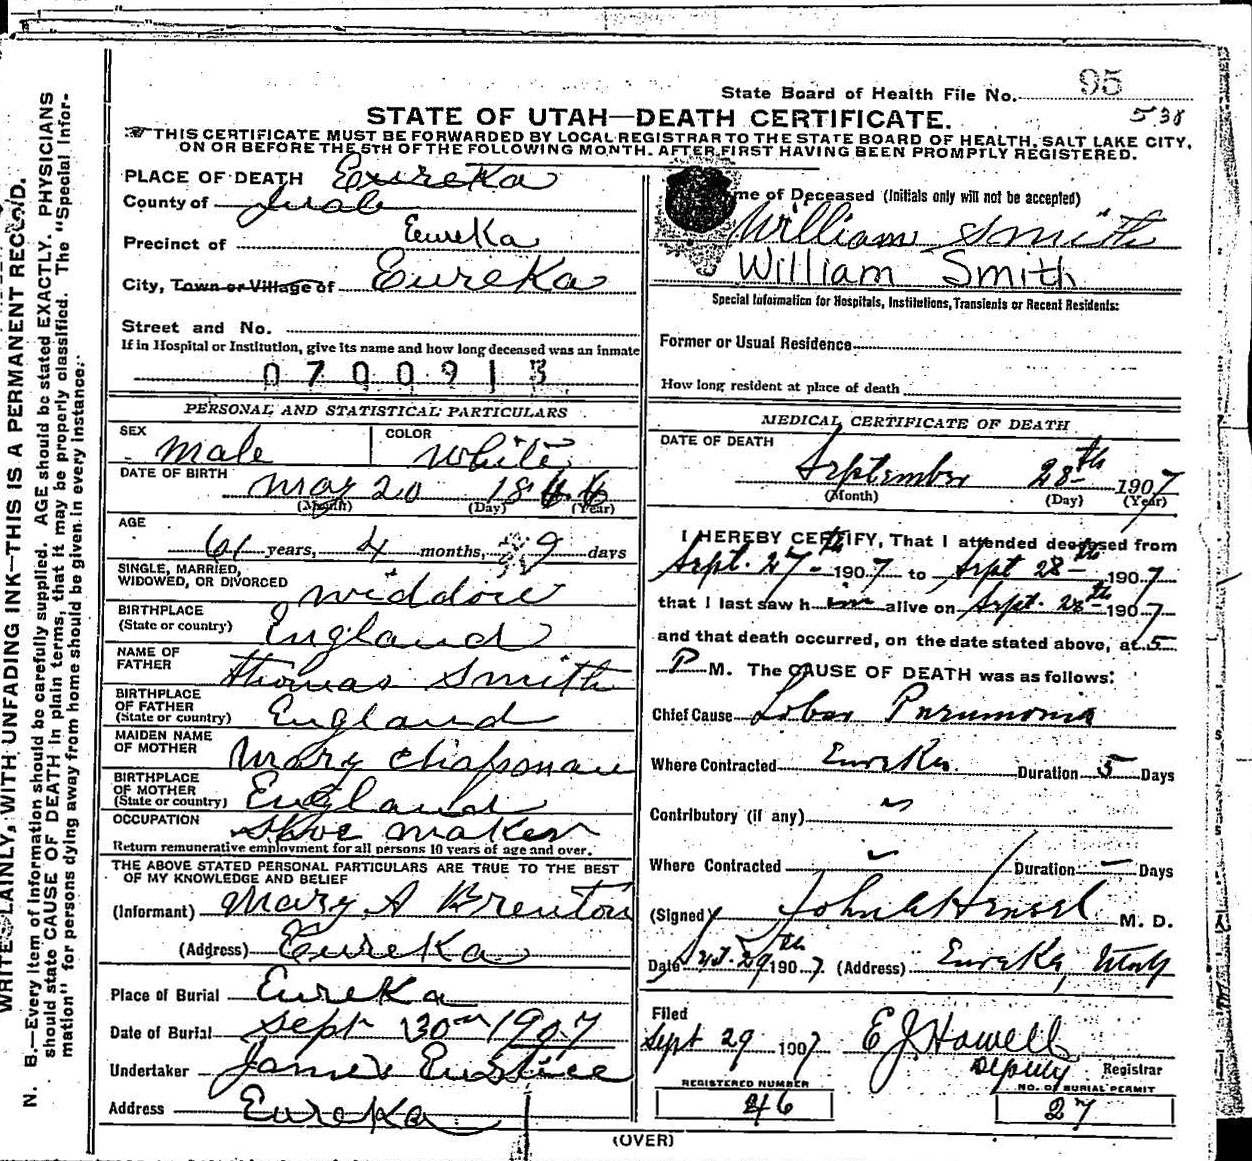 State Board of Health File No. 95
538
STATE OF UTAH—DEATH CERTIFICATE.
THIS CERTIFICATE MUST BE FORWARDED BY LOCAL REGISTRAR TO THE STATE BOARD OF HEALTH, SALT LAKE CITY,
ON OR BEFORE THE 5TH OF THE FOLLOWING MONTH. AFTER FIRST HAVING BEEN PROMPTLY REGISTERED.
PLACE OF DEATH Eureka
County of Juab
Precinct of Eureka
City, Town or Village of Eureka
Street and No.
If in Hospital or Institution, give its name and how long deceased was an inmate
0700913
PERSONAL AND STATISTICAL PARTICULARS
SEX Male COLOR White
DATE OF BIRTH May 20 1846
(Month) (Day) (Year)
AGE 61 years, 4 months, 9 days
SINGLE, MARRIED,
WIDOWED, OR DIVORCED Widdow
BIRTHPLACE
(State or country) England
NAME OF
FATHER Thomas Smith
BIRTHPLACE
OF FATHER
(State or country) England
MAIDEN NAME
OF MOTHER Mary Chapman
BIRTHPLACE
OF MOTHER
(State or country) England
OCCUPATION Shoe maker
Return remunerative employment for all persons 10 years of age and over.
THE ABOVE STATED PERSONAL PARTICULARS ARE TRUE TO THE BEST
OF MY KNOWLEDGE AND BELIEF
(Informant) Mary A Brenton
(Address) Eureka
Place of Burial Eureka
Date of Burial Sept 30th 1907
Undertaker James Eustice
Address Eureka
me of Deceased (Initials only will not be accepted)
William Smith
William Smith
Special Information for Hospitals, Institutions, Transients or Recent Residents:
Former or Usual Residence
How long resident at place of death
MEDICAL CERTIFICATE OF DEATH
DATE OF DEATH
September 28th 1907
(Month) (Day) (Year)
I HEREBY CERTIFY, That I attended deceased from
Sept. 27th 1907 to Sept 28th 1907
that I last saw him alive on Sept. 28th 1907
and that death occurred, on the date stated above, at 5
P M. The CAUSE OF DEATH was as follows:
Chief Cause Lobar Pneumonia
Where Contracted Eureka Duration 5 Days
Contributory (if any)
Where Contracted Duration Days
(Signed) John Hensel M. D.
Date Sept. 29th 1907. (Address) Eureka, Utah
Filed
Sept 29 1907 E J Howell
Deputy Registrar
REGISTERED NUMBER NO. OF BURIAL PERMIT
46 27
(OVER)
WRITE PLAINLY, WITH UNFADING INK—THIS IS A PERMANENT RECORD.
N. B.—Every item of information should be carefully supplied. AGE should be stated EXACTLY. PHYSICIANS
should state CAUSE OF DEATH in plain terms, that it may be properly classified. The "Special Infor-
mation" for persons dying away from home should be given in every instance.